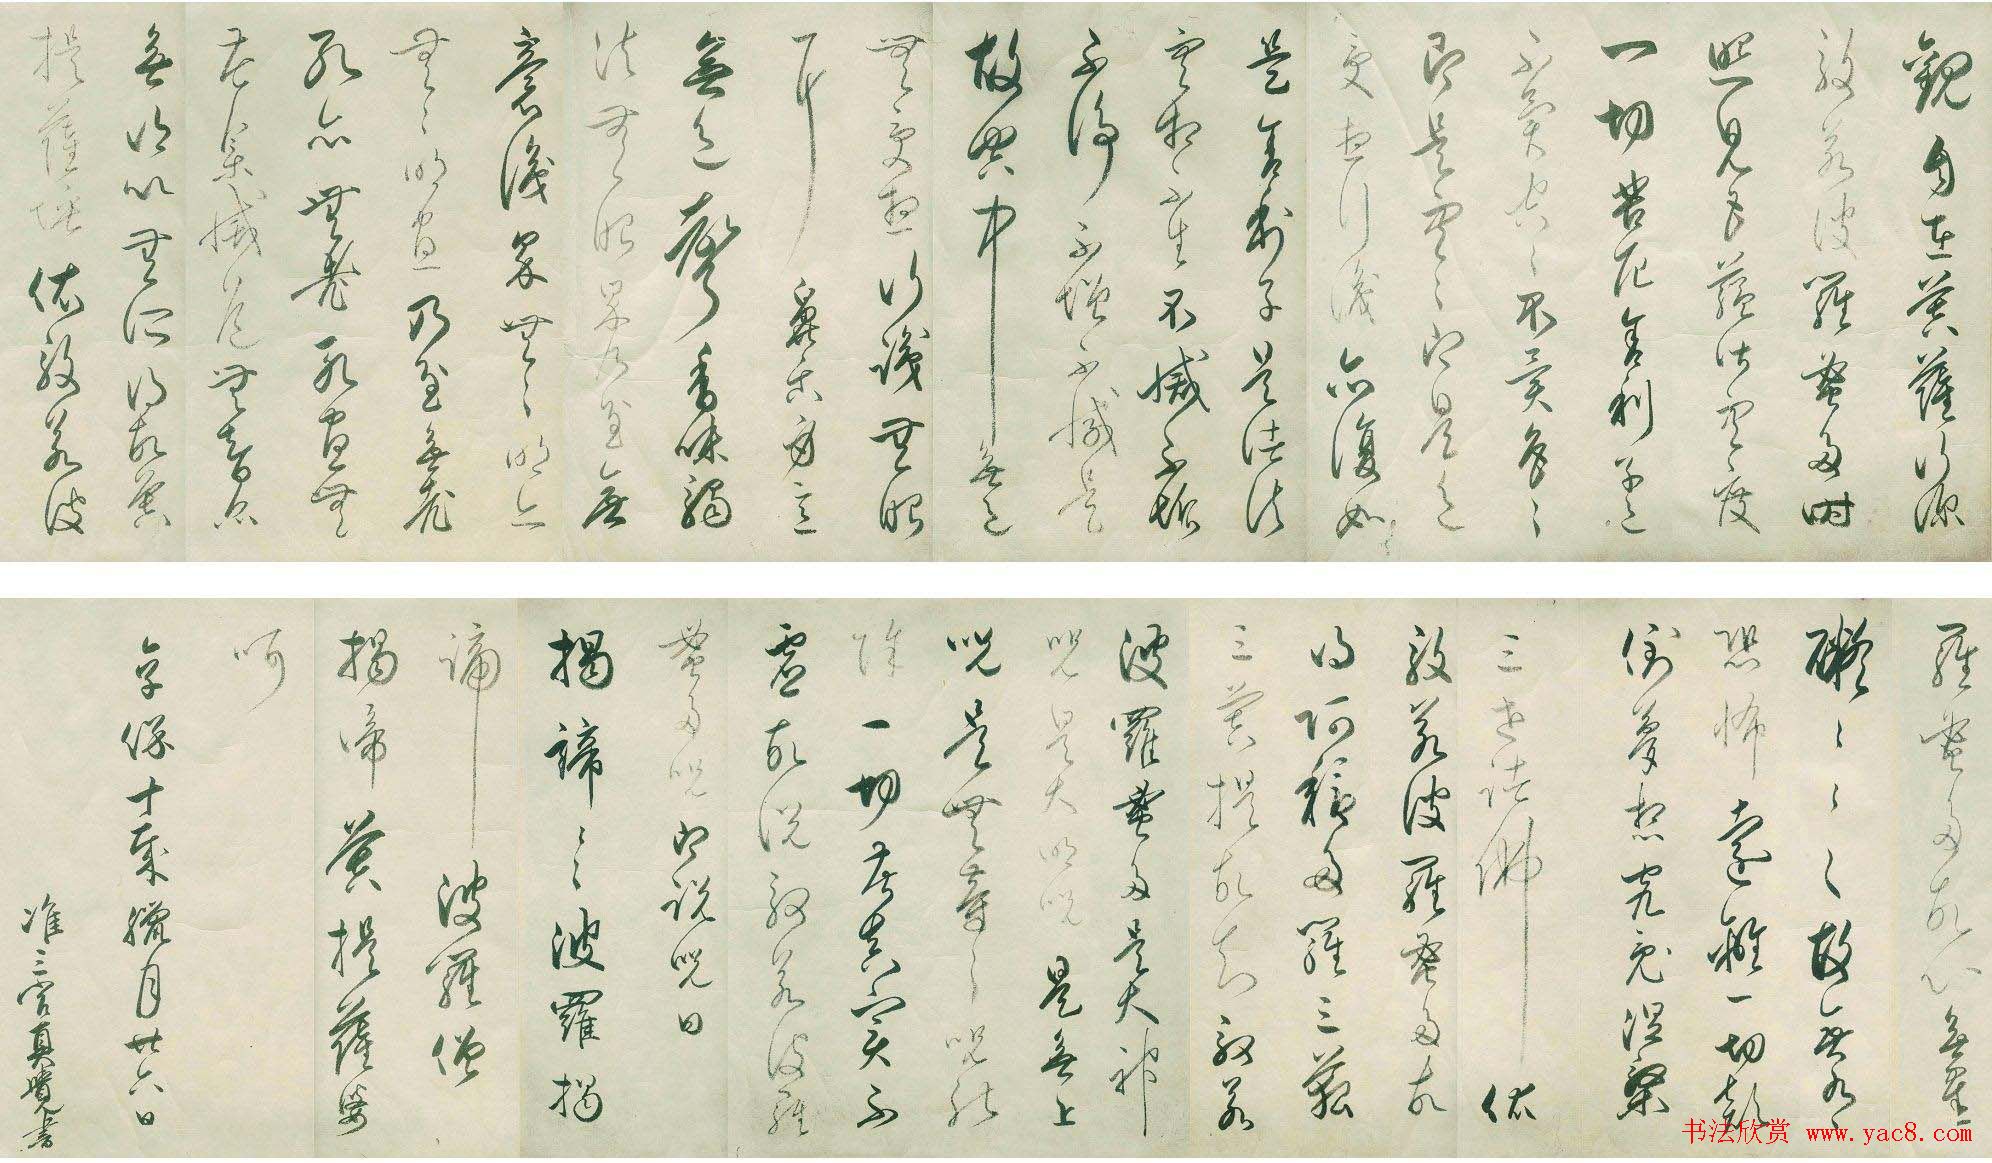 觀自在菩薩行深
般若波羅蜜多時
照見五蘊皆空度
一切苦厄舍利子色
不異空〻不異色〻
即是空〻即是色
受想行識亦復如
是舍利子是諸法
空相不生不滅不垢
不淨不增不減是
故空中無色
無受想行識無眼
耳鼻舌身意
無色聲香味觸
法無眼界乃至無
意識界無〻明亦
無〻明盡乃至無老
死亦無老死盡無
苦集滅道無智亦
無得以無所得故菩
提薩埵依般若波
羅蜜多故心無罣
礙〻〻〻故無有〻
恐怖遠離一切顛
倒夢想究竟涅槃
三世諸佛依
般若波羅蜜多故
得阿耨多羅三藐
三菩提故知般若
波羅蜜多是大神
咒是大明咒是無上
咒是無等〻咒能
除一切苦真實不
虛故說般若波羅
蜜多咒即說咒曰
揭諦〻〻波羅揭
諦波羅僧
揭帝菩提薩婆
呵
享保十歲臘月廿六日
准三宮真覺書
书法欣赏 www.yac8.com